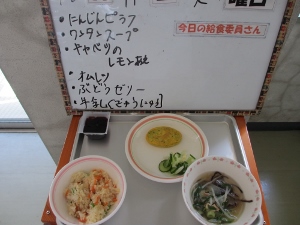 曜日
今日の給食委員さん
・にんじんピラフ
・ワンタンスープ
・キャベツの
レモン酢
・オムレツ
・ぶどうゼリー
・牛乳